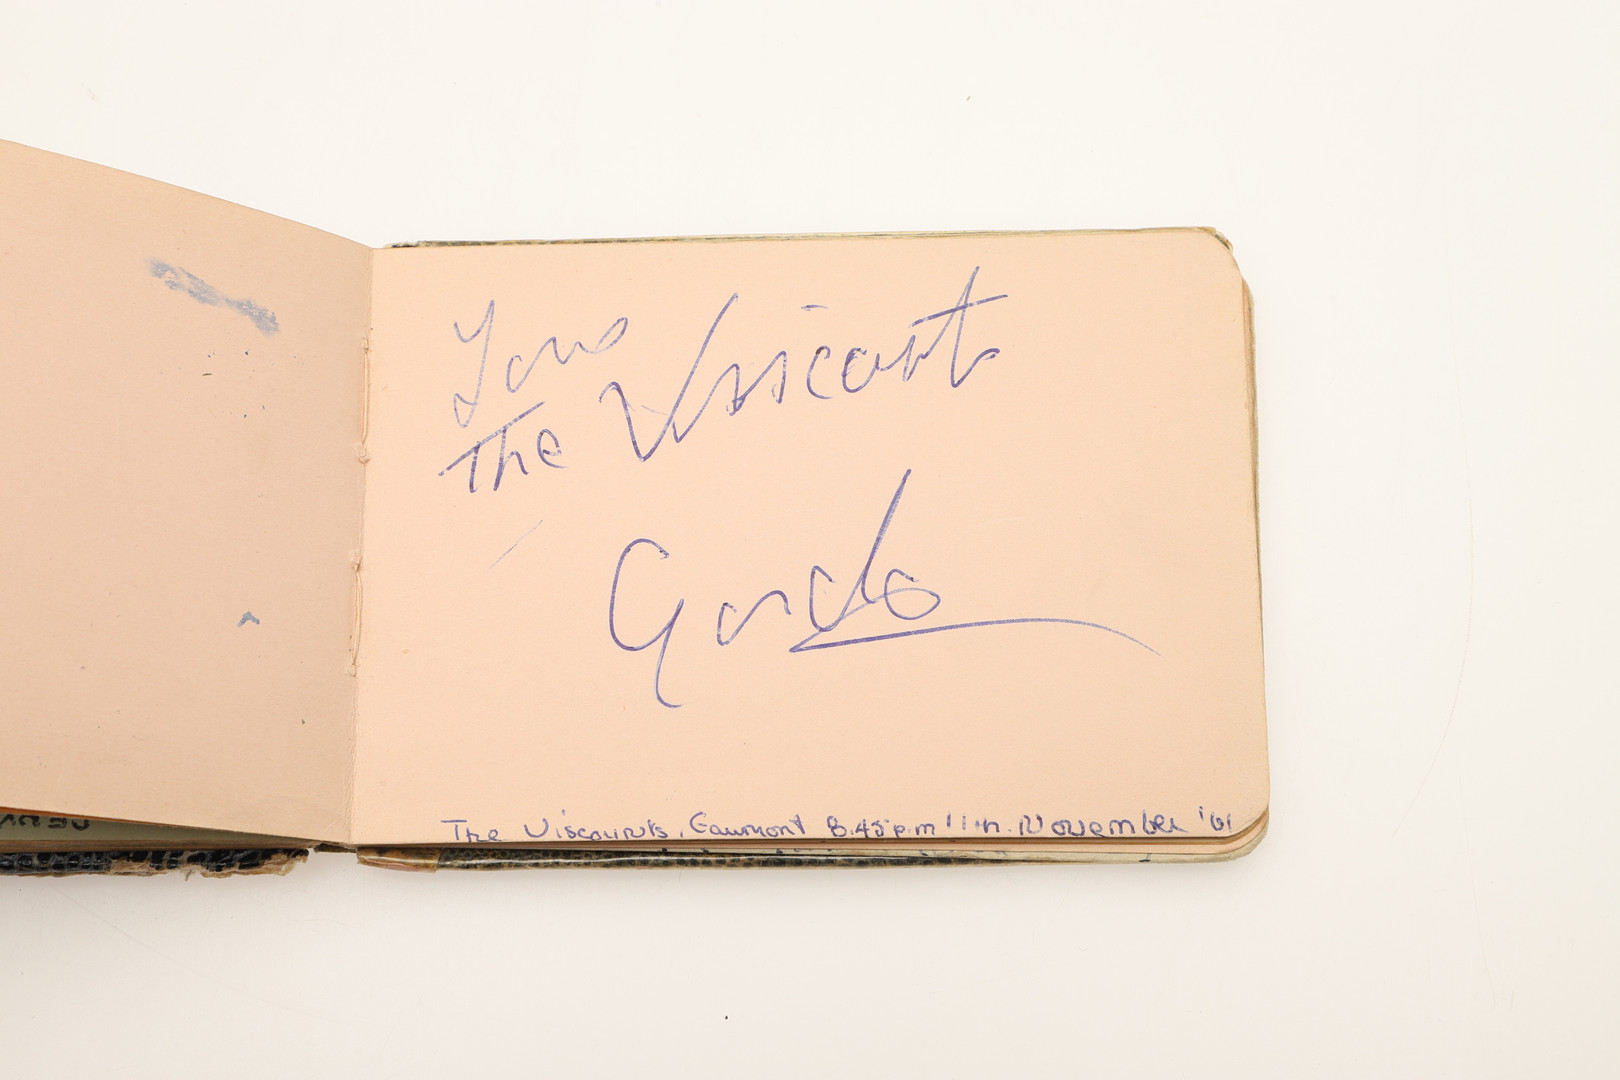 Yours
The Viscount
Gordo
The Viscounts, Gaumont 8.45p.m 11th. November '61